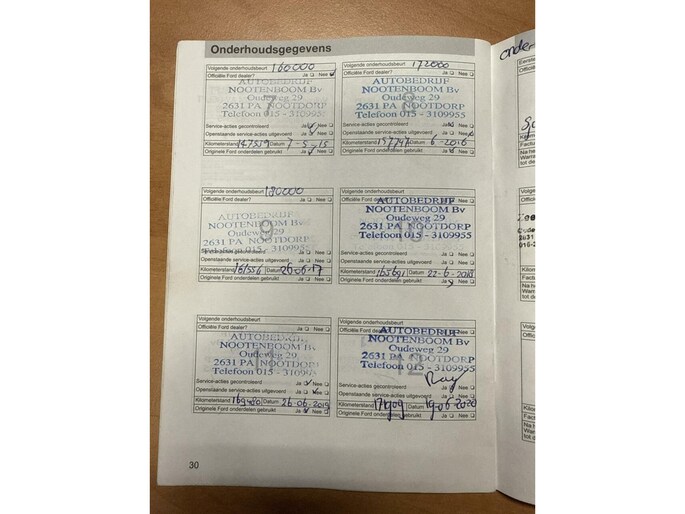 Onderhoudsgegevens
Volgende onderhoudsbeurt 160000
Officiële Ford dealer? Ja Nee
AUTOBEDRIJF
NOOTENBOOM Bv
Oudeweg 29
2631 PA NOOTDORP
Telefoon 015 - 3109955
7
Service-acties gecontroleerd Ja Nee
Openstaande service-acties uitgevoerd Ja Nee
Kilometerstand 147519 Datum 7-5-15
Originele Ford onderdelen gebruikt Ja Nee
Volgende onderhoudsbeurt 172000
Officiële Ford dealer? Ja Nee
AUTOBEDRIJF
NOOTENBOOM Bv
Oudeweg 29
2631 PA NOOTDORP
Telefoon 015 - 3109955
8
Service-acties gecontroleerd Ja Nee
Openstaande service-acties uitgevoerd Ja Nee
Kilometerstand 157747 Datum 6-2016
Originele Ford onderdelen gebruikt Ja Nee
Volgende onderhoudsbeurt 180000
Officiële Ford dealer? Ja Nee
AUTOBEDRIJF
NOOTENBOOM Bv
Oudeweg 29
2631 PA NOOTDORP
Telefoon 015 - 3109955
9
Service-acties gecontroleerd Ja Nee
Openstaande service-acties uitgevoerd Ja Nee
Kilometerstand 161556 Datum 26-06-17
Originele Ford onderdelen gebruikt Ja Nee
Volgende onderhoudsbeurt
AUTOBEDRIJF
NOOTENBOOM Bv
Oudeweg 29
2631 PA NOOTDORP
Telefoon 015 - 3109955
10
Openstaande service-acties uitgevoerd Ja Nee
Kilometerstand 165691 Datum 22-6-2018
Originele Ford onderdelen gebruikt Ja Nee
Volgende onderhoudsbeurt
Officiële Ford dealer? Ja Nee
AUTOBEDRIJF
NOOTENBOOM Bv
Oudeweg 29
2631 PA NOOTDORP
Telefoon 015 - 31099
11
Service-acties gecontroleerd Ja Nee
Openstaande service-acties uitgevoerd Ja Nee
Kilometerstand 169480 Datum 26-06-2019
Originele Ford onderdelen gebruikt Ja Nee
Volgende onderhoudsbeurt
Officiële Ford dealer? Ja Nee
AUTOBEDRIJF
NOOTENBOOM Bv
Oudeweg 29
2631 PA NOOTDORP
Telefoon 015 - 3109955
12
Ray
Service-acties gecontroleerd Ja Nee
Openstaande service-acties uitgevoerd Ja Nee
Kilometerstand 171909 Datum 19-06-2020
Originele Ford onderdelen gebruikt Ja Nee
30